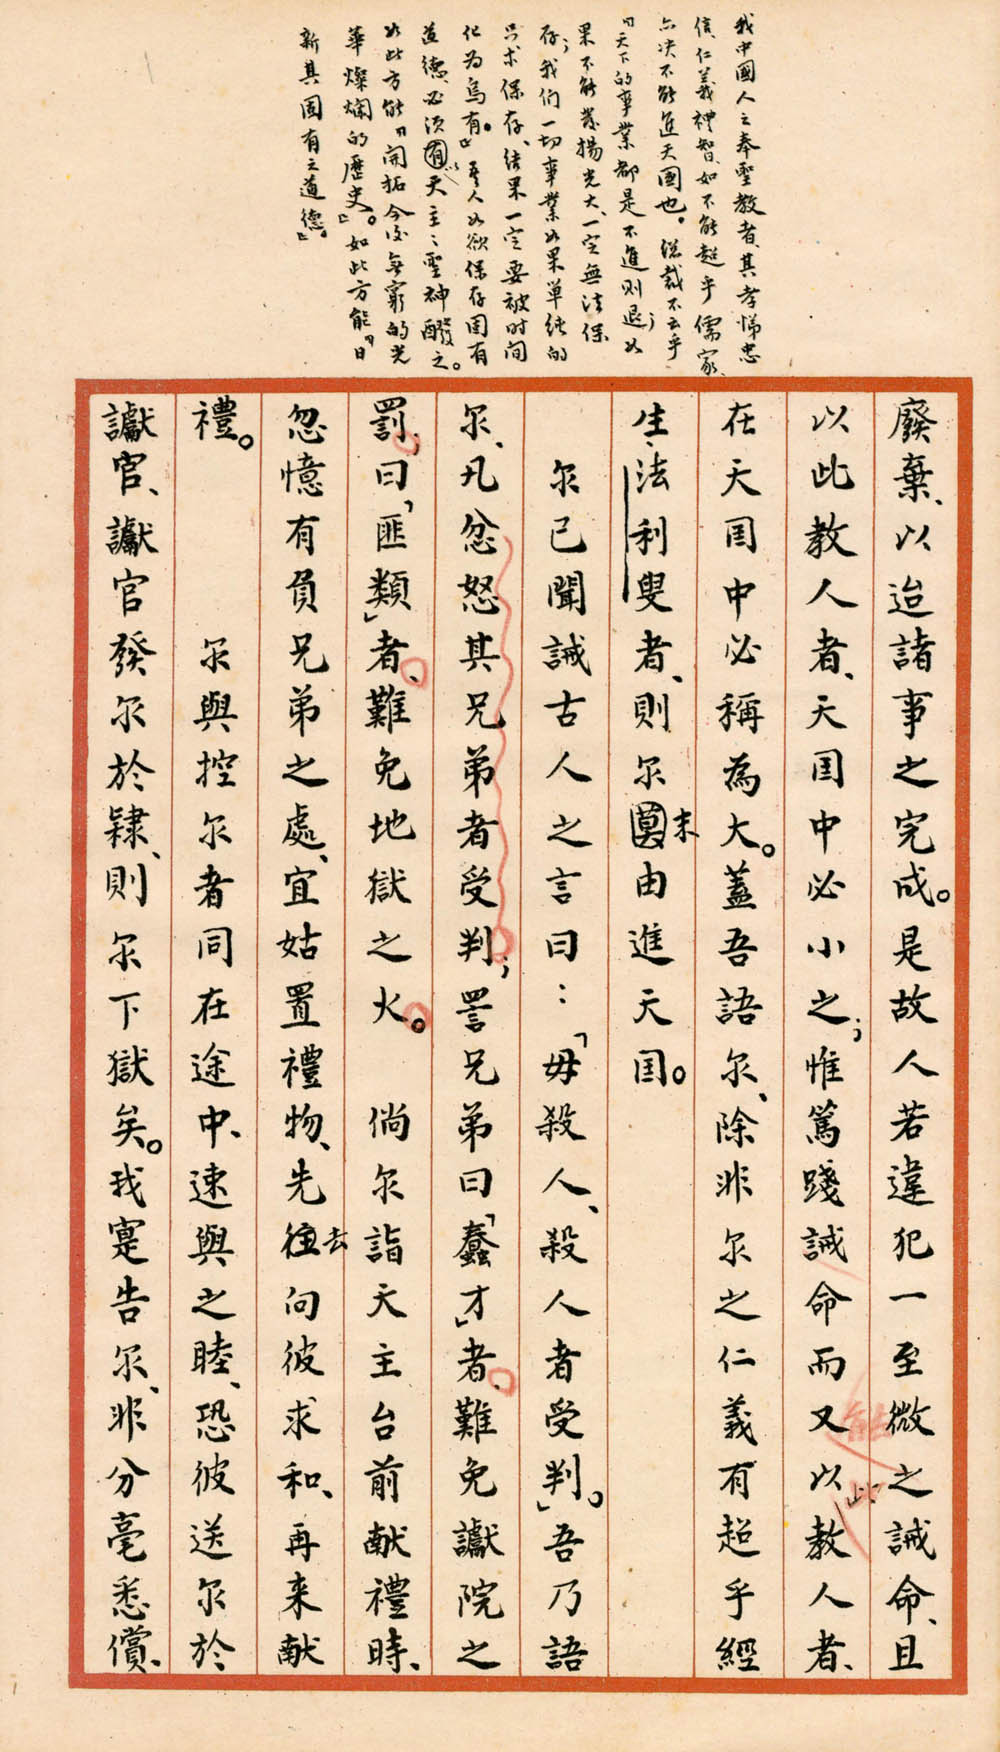 我中國人之奉聖教者、其孝悌忠
信、仁義禮智、如不能超乎儒家、
亦決不能進天國也。總裁不云乎
「天下的事業都是不進則退；如
果不能發揚光大、一定無法保
存；我們一切事業如果單純的
只求保存、結果一定要被时间
化为烏有。」吾人如欲保存固有
道德、必須以天主之聖神醱之。
如此方能「開拓今後無窮的光
華燦爛的歷史」。如此方能「日
新其固有之道德」。
廢棄、以迨諸事之完成。是故人若違犯一至微之誡命、且
以此教人者、天国中必小之；惟篤踐誡命而又能以此教人者、
在天国中必稱為大。蓋吾語尔、除非尔之仁義有超乎經
生、法利叟者、則尔末由進天国。
尔已聞誡古人之言曰：「毋殺人、殺人者受判」。吾乃語
尔、凡忿怒其兄弟者受判；詈兄弟曰「蠢才」者、難免讞院之
罰；曰「匪類」者、難免地獄之火。倘尔詣天主台前献禮時、
忽憶有負兄弟之處、宜姑置禮物、先去向彼求和、再来献
禮。
尔與控尔者同在途中、速與之睦、恐彼送尔於
讞官、讞官發尔於隸、則尔下獄矣。我寔告尔、非分毫悉償、